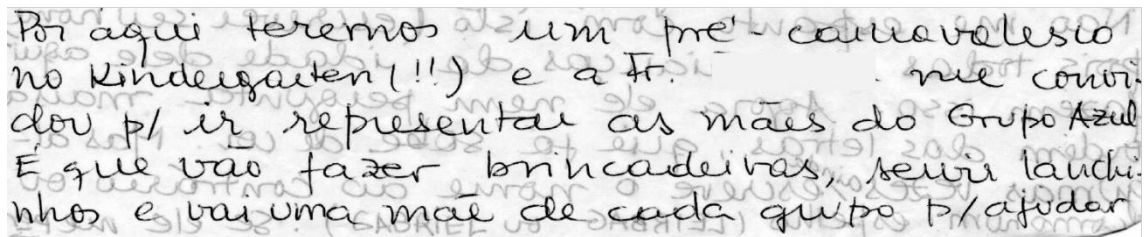 Por aqui teremos um pré-carnavalesco
no Kindergarten (!!) e a Fr. me convi-
dou p/ ir representar as mães do Grupo Azul
É que vão fazer brincadeiras, servir lanchi-
nhos e vai uma mãe de cada grupo p/ajudar